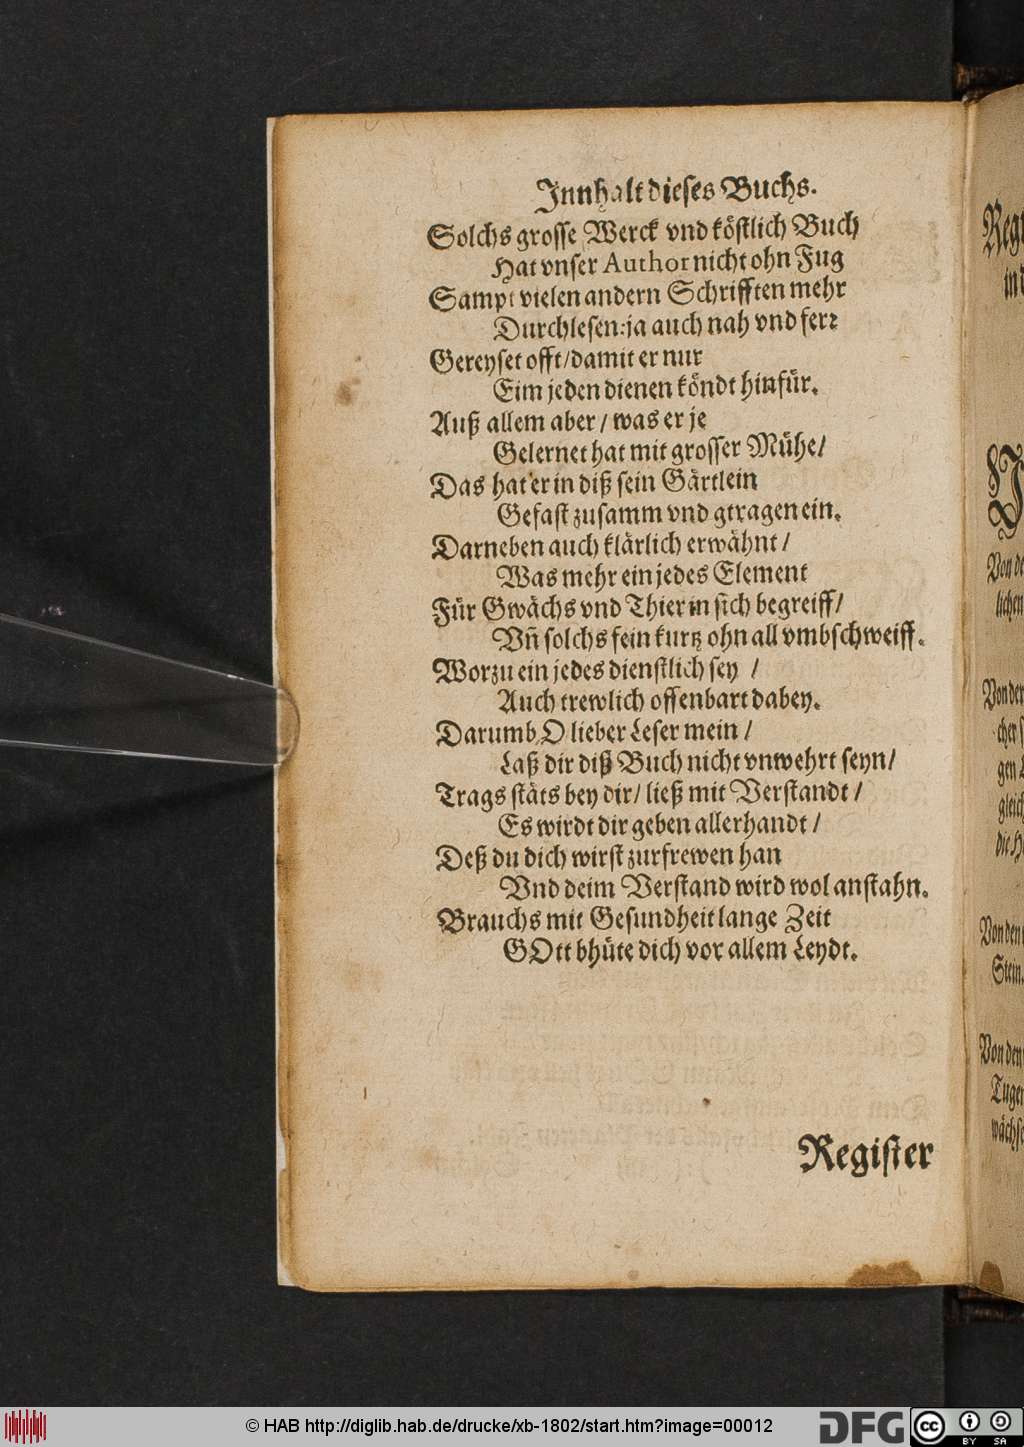 Innhalt dieses Buchs.
Solchs grosse Werck vnd köstlich Buch
Hat vnser Author nicht ohn Fug
Sampt vielen andern Schrifften mehr
Durchlesen: ja auch nah vnd ferꝛ
Gereyset offt / damit er nur
Eim jeden dienen köndt hinfür.
Auß allem aber / was er je
Gelernet hat mit grosser Mühe /
Das hat er in diß sein Gärtlein
Gefast zusamm vnd gtragen ein.
Darneben auch klärlich erwähnt /
Was mehr ein jedes Element
Für Gwächs vnd Thier in sich begreiff /
Vn̄ solchs fein kurtz ohn all vmbschweiff.
Worzu ein jedes dienstlich sey /
Auch trewlich offenbart dabey.
Darumb, O lieber Leser mein /
Laß dir diß Buch nicht vnwehrt seyn /
Trags stäts bey dir / ließ mit Verstandt /
Es wirdt dir geben allerhandt /
Deß du dich wirst zurfrewen han
Vnd deim Verstand wird wol anstahn.
Brauchs mit Gesundheit lange Zeit
GOtt bhüte dich vor allem Leydt.
Register
Von der
gen
Stein.
© HAB http://diglib.hab.de/drucke/xb-1802/start.htm?image=00012
DFG
cc
BY SA